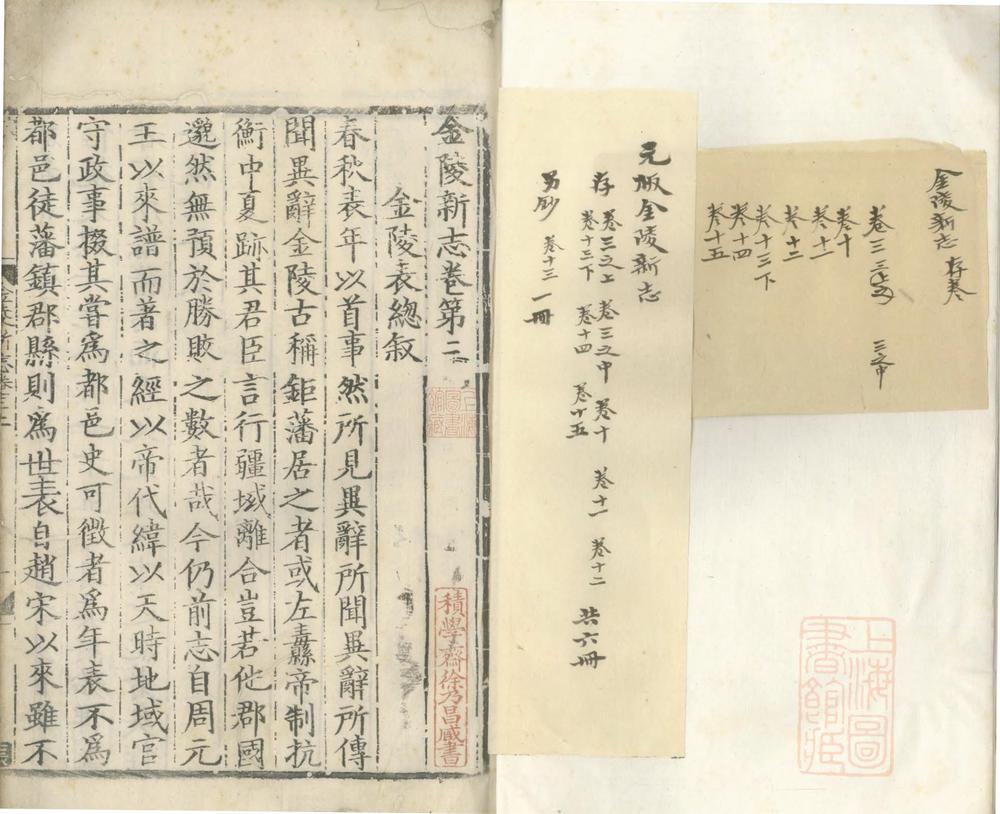 金陵新志 存卷
卷三 三之上 三之中
卷十
卷十一
卷十二
卷十三下
卷十四
卷十五
上海圖書館藏
元版金陵新志
存 卷三之上 卷三之中 卷十 卷十一 卷十二 共六冊
卷十三下 卷十四 卷十五
另鈔 卷十三 一冊
金陵新志卷第三
上海圖書館藏
積學齋徐乃昌藏書
金陵表總敘
春秋表年以首事然所見異辭所聞異辭所傳
聞異辭金陵古稱鉅藩居之者或左纛帝制抗
衡中夏跡其君臣言行疆域離合豈若他郡國
邈然無預於勝敗之數者哉今仍前志自周元
王以來譜而著之經以帝代緯以天時地域官
守政事掇其嘗爲都邑史可徵者爲年表不爲
都邑徒藩鎮郡縣則爲世表自趙宋以來雖不